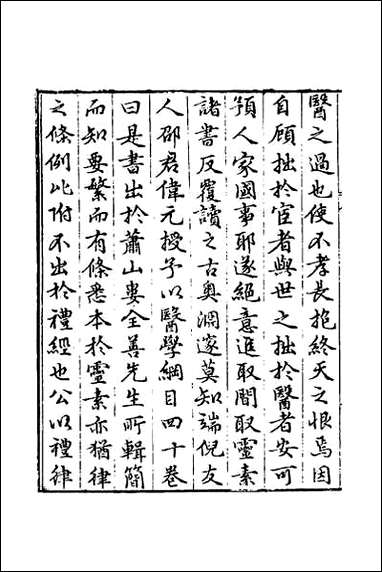 醫之過也使不孝長抱終天之恨焉因
自顧拙於宦者與世之拙於醫者安可
預人家國事耶遂絕意進取間取靈素
諸書反覆讀之古奧淵邃莫知端倪友
人邵君偉元授予以醫學綱目四十卷
曰是書出於蕭山婁全善先生所輯簡
而知要繁而有條悉本於靈素亦猶律
之條例比附不出於禮經也公以禮律